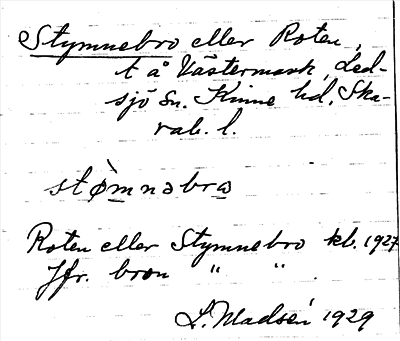 Stymnebro eller Roten,
t å Västermark, Led-
sjö sn. Kinne hd, Ska-
rab. l.
stø̀mnəbrω
Roten eller Stymnebro kb. 1927
Jfr. bron " " .
L. Madsén 1929